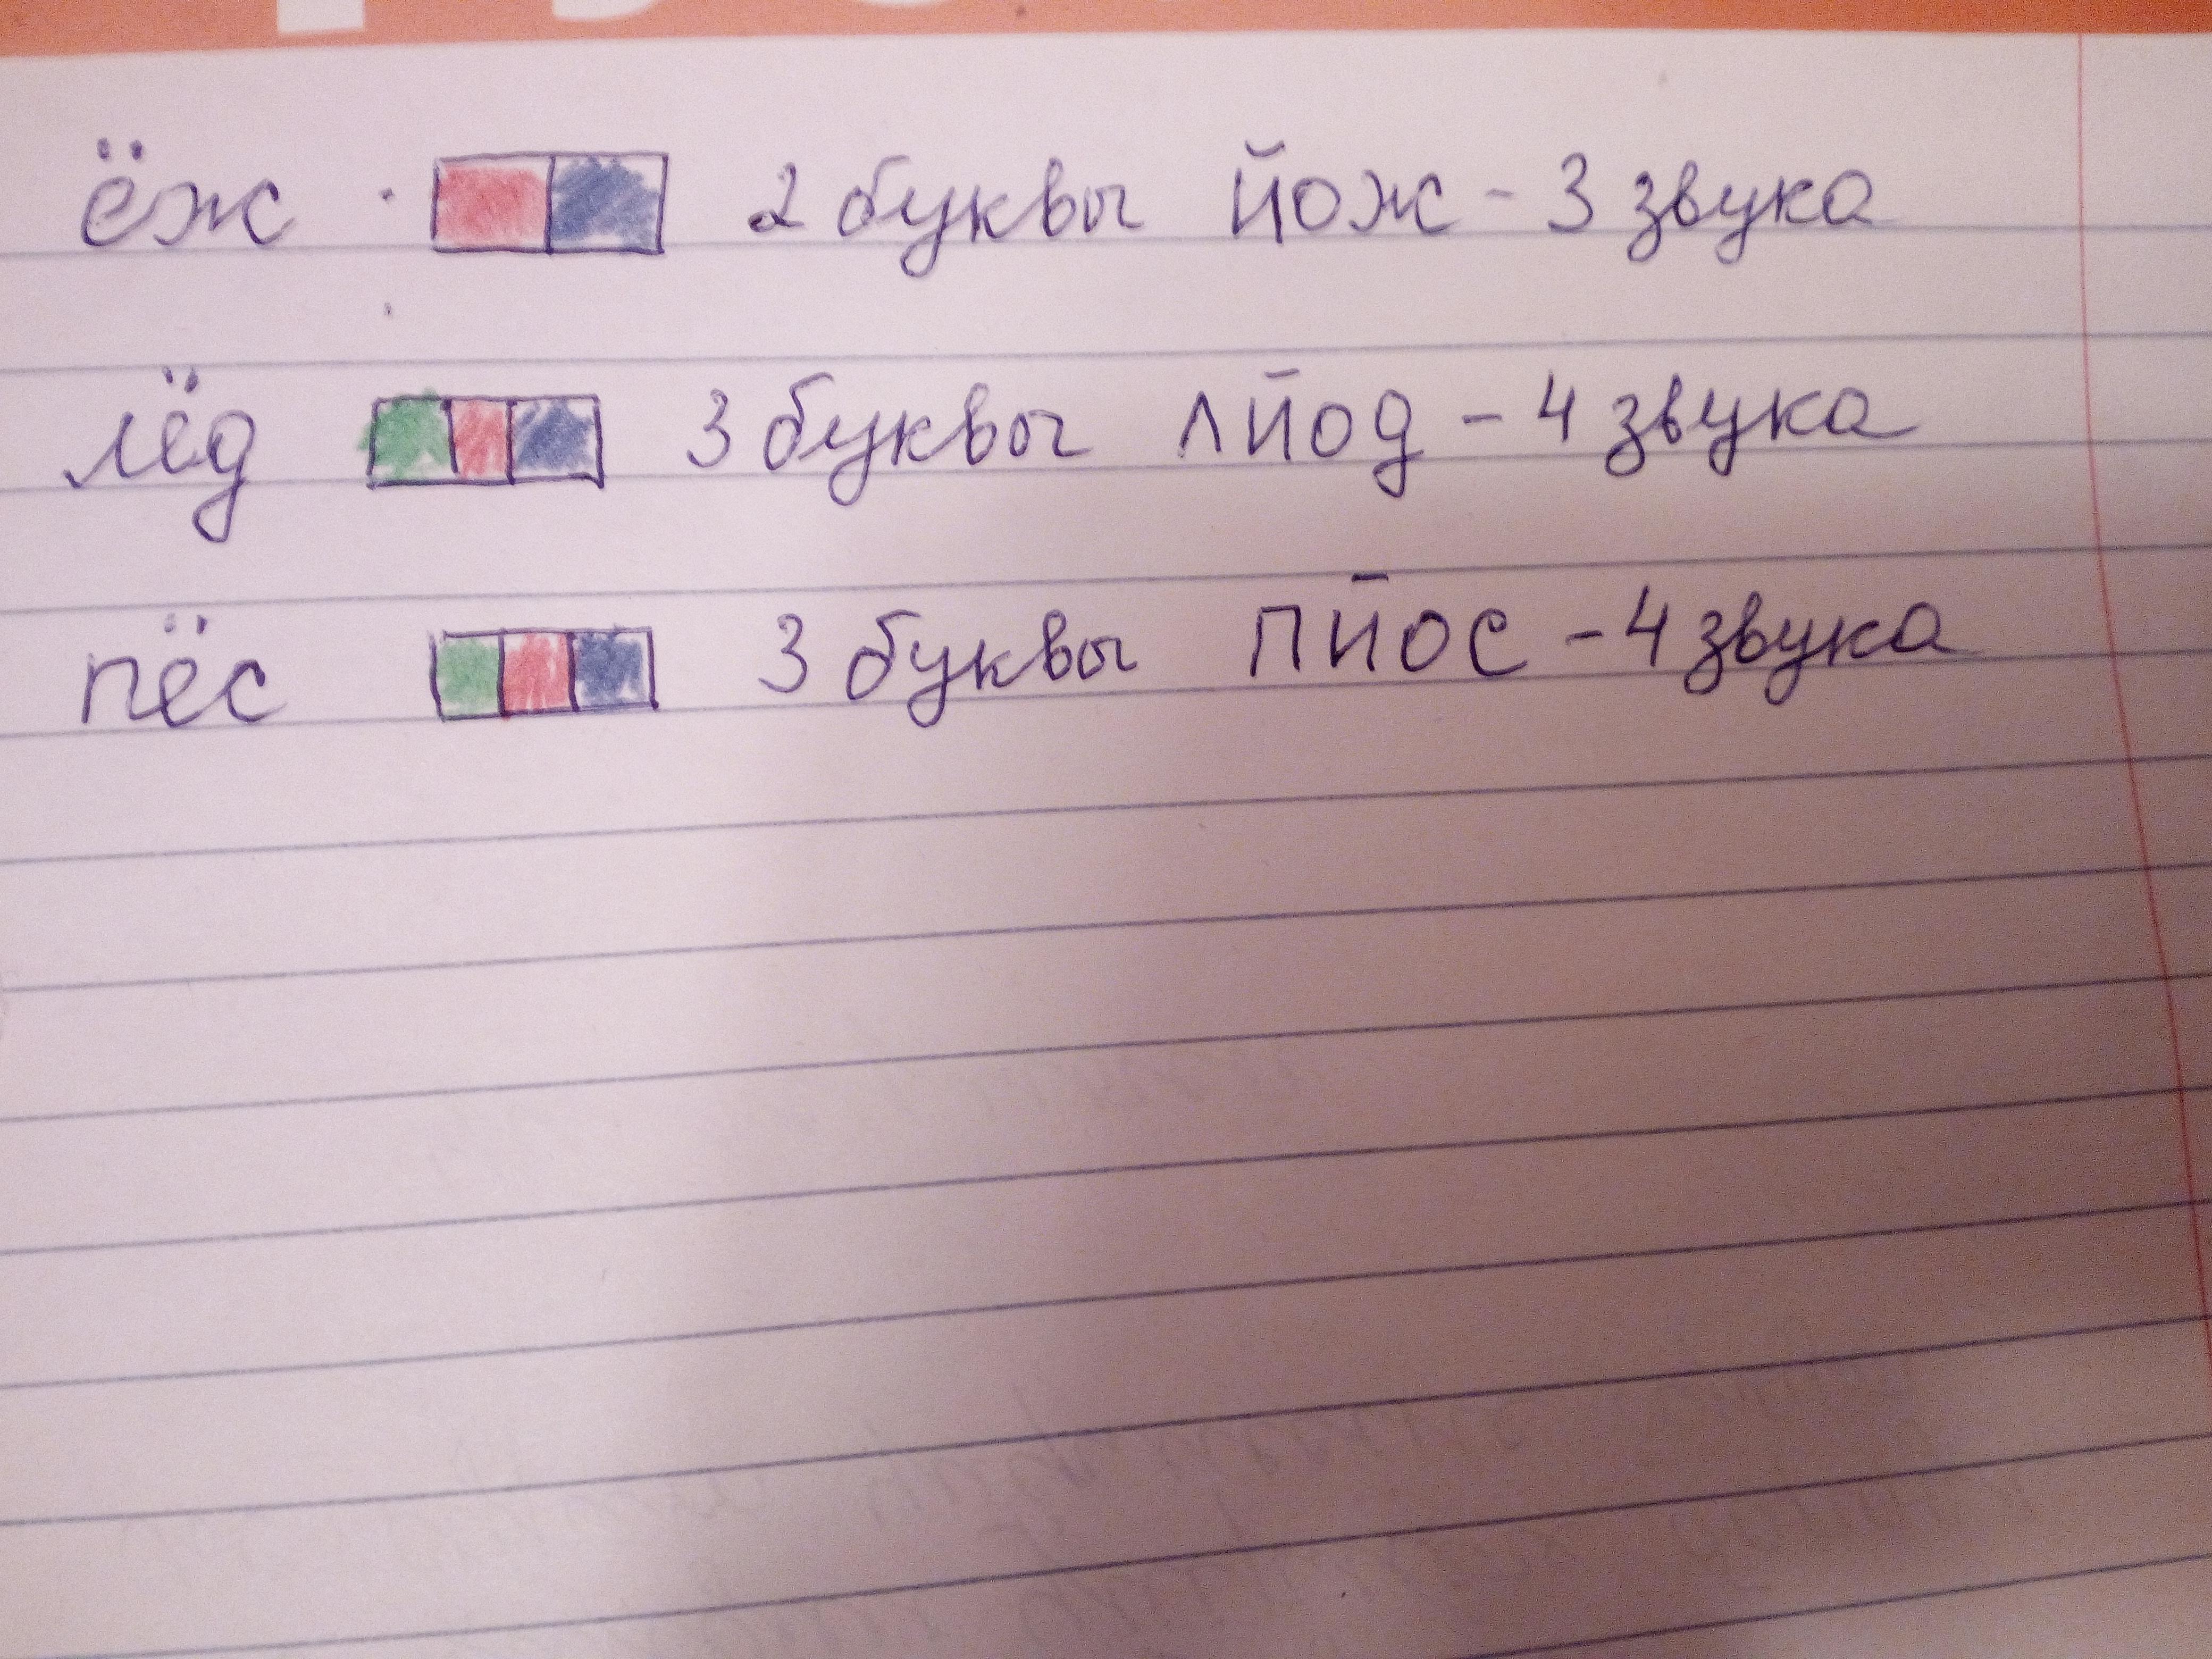 ёж 2 буквы йож - 3 звука
лёд 3 буквы лйод - 4 звука
пёс 3 буквы пйос - 4 звука